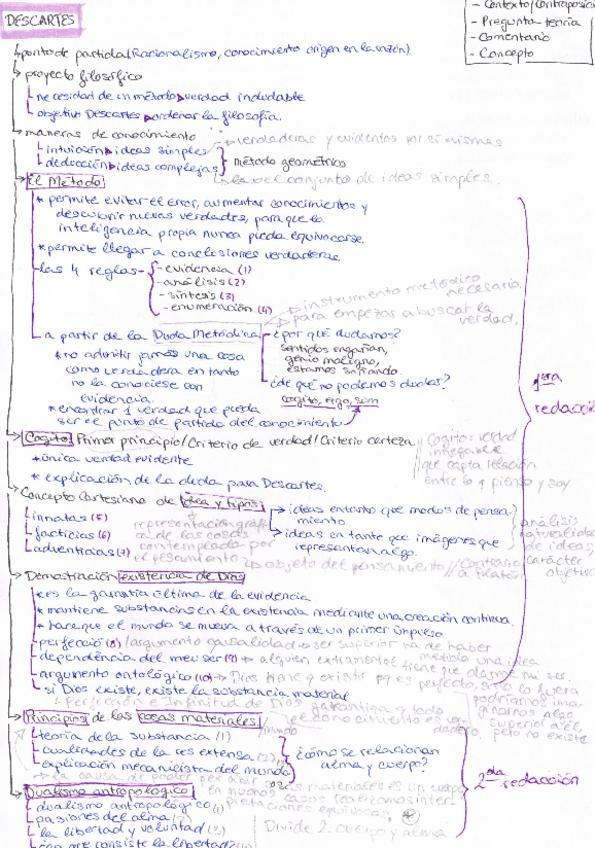 DESCARTES
- Contexto/Contraposici
- Pregunta-teoría
- Comentario
- Concepto
punto de partida (Racionalismo, conocimiento origen en la razón)
proyecto filosófico
necesidad de un método verdad indudable
objetivo Descartes ordenar la filosofía.
maneras de conocimiento
verdaderas y evidentes por si mismas
intuición ideas simples
deducción ideas complejas } método geométrico
es el conjunto de ideas simples.
El Método
* permite evitar el error, aumentar conocimientos y
descubrir nuevas verdades, para que la
inteligencia propia nunca pueda equivocarse.
* permite llegar a conclusiones verdaderas.
las 4 reglas - evidencia (1)
- análisis (2)
- síntesis (3)
- enumeración (4)
instrumento metódico
necesario
para empezar a buscar la
verdad.
a partir de la Duda Metódica
¿por qué dudamos?
sentidos engañan,
genio maligno,
estamos soñando
* no admitir jamás una cosa
como verdadera en tanto
no la conociese con
evidencia.
¿de qué no podemos dudar?
cogito, ergo, sum
* encontrar 1 verdad que pueda
ser el punto de partida del conocimiento
1era
redacció
Cogito Primer principio/Criterio de verdad/Criterio certeza
* única verdad evidente
* explicación de la duda para Descartes.
Cogito: verdad
innegable
que capta relación
entre lo q pienso y soy
Concepto Cartesiano de idea y tipos
innatas (5)
facticias (6)
adventicias (7)
representación
de las cosas
contemplada por
el pensamiento
ideas en tanto que modos de pensa
miento
ideas en tanto que imágenes que
representan algo.
objeto del pensamiento // Contrario
a Platón
análisis
naturalidad
de ideas;
carácter
objetivo
Demostración existencia de Dios
* es la garantía última de la evidencia
* mantiene substancias en la existencia mediante una creación continua.
* hace que el mundo se mueva a través de un primer impulso
perfecció (8) / argumento causalidad ser superior ha de haber
metido una idea
dependència del meu ser (9) alguien extramental tiene que darme mi ser.
argumento ontológico (10) Dios tiene q existir pq es perfecto, si no lo fuera
podríamos ima
ginarnos algo
superior a él,
pero no existe
si Dios existe, existe la substancia material
Perfección e Infinitud de Dios garantiza q todo
el conocimiento es ver
dadero.
Principios de las cosas materiales/
mundo
teoría de la substancia (1)
cualidades de la res extensa (2)
explicación mecanicista del mundo
¿cómo se relacionan
alma y cuerpo?
2da redacción
Dualismo antropológico
dualismo antropológico (1)
pasiones del alma (2)
la libertad y voluntad (3)
Divide 2. cuerpo y alma
con que consiste la libertad?